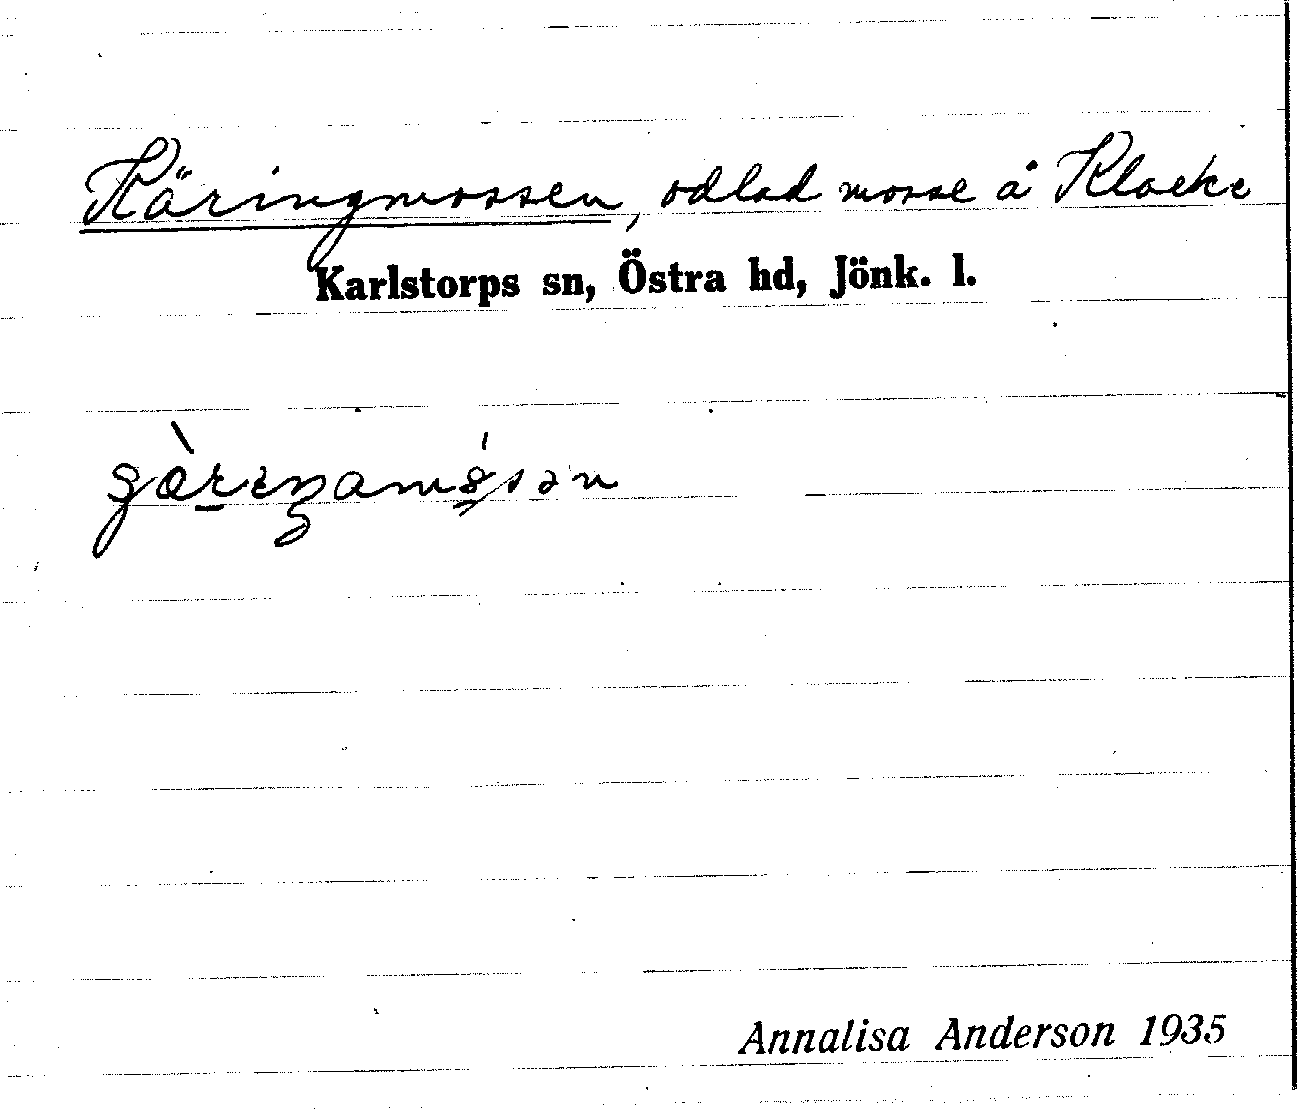 Käringmossen, odlad mosse å Klacke
Karlstorps sn, Östra hd, Jönk. l.
Annalisa Anderson 1935